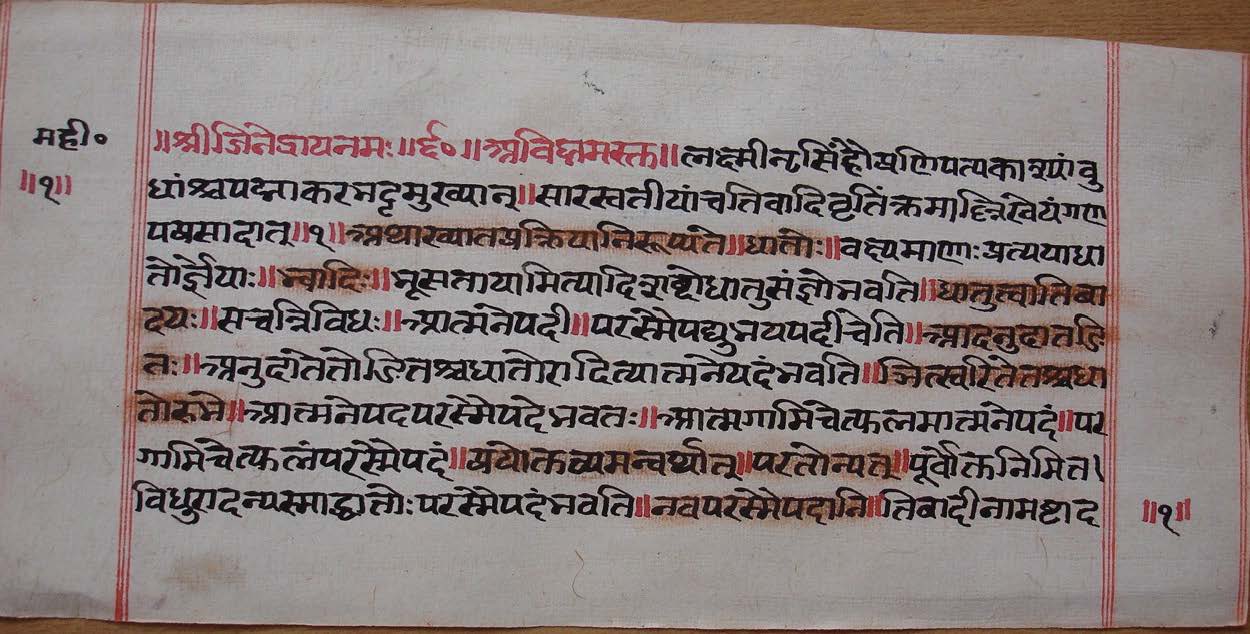 मही०
॥श्रीजिनेंद्रायनमः॥र्द०॥अविघ्नमस्तु॥लक्ष्मीनृसिंहौप्रणिपत्यकाश्यांबु
॥१॥
धांश्चपद्माकरभट्टमुख्यान्॥सारस्वतीयांचतिबादिवृतिं
पप्रसादात्॥१॥अथाख्यातप्रक्रियानिरूप्यते॥धातोः॥वक्ष्यमाणाःप्रत्ययाधा
तोर्ज्ञेयाः॥भ्वादिः॥भूसतायामित्यादिशब्दोधातुसंज्ञोभवति॥धातुत्वातिबा
दयः॥सचत्रिविधः॥आत्मनेपदी॥परस्मैपद्युभयपदीचेति॥आदनुदातङि
तः॥अनुदातेतोङितश्चधातोरादित्यात्मनेपदंभवति॥ञित्स्वरितेतश्चधा
तोरुभे॥आत्मनेपदपरस्मैपदेभवतः॥आत्मगामिचेत्फलमात्मनेपदं॥पर
गामिचेत्फलंपरस्मैपदं॥प्रयोक्तव्यमन्वर्थात्॥परतोन्यत्॥पूर्वोक्तनिमित
विधुरादन्यस्माद्धातोःपरस्मैपदंभवति॥नवपरस्मैपदानि॥तिबादीनामष्टाद
॥१॥